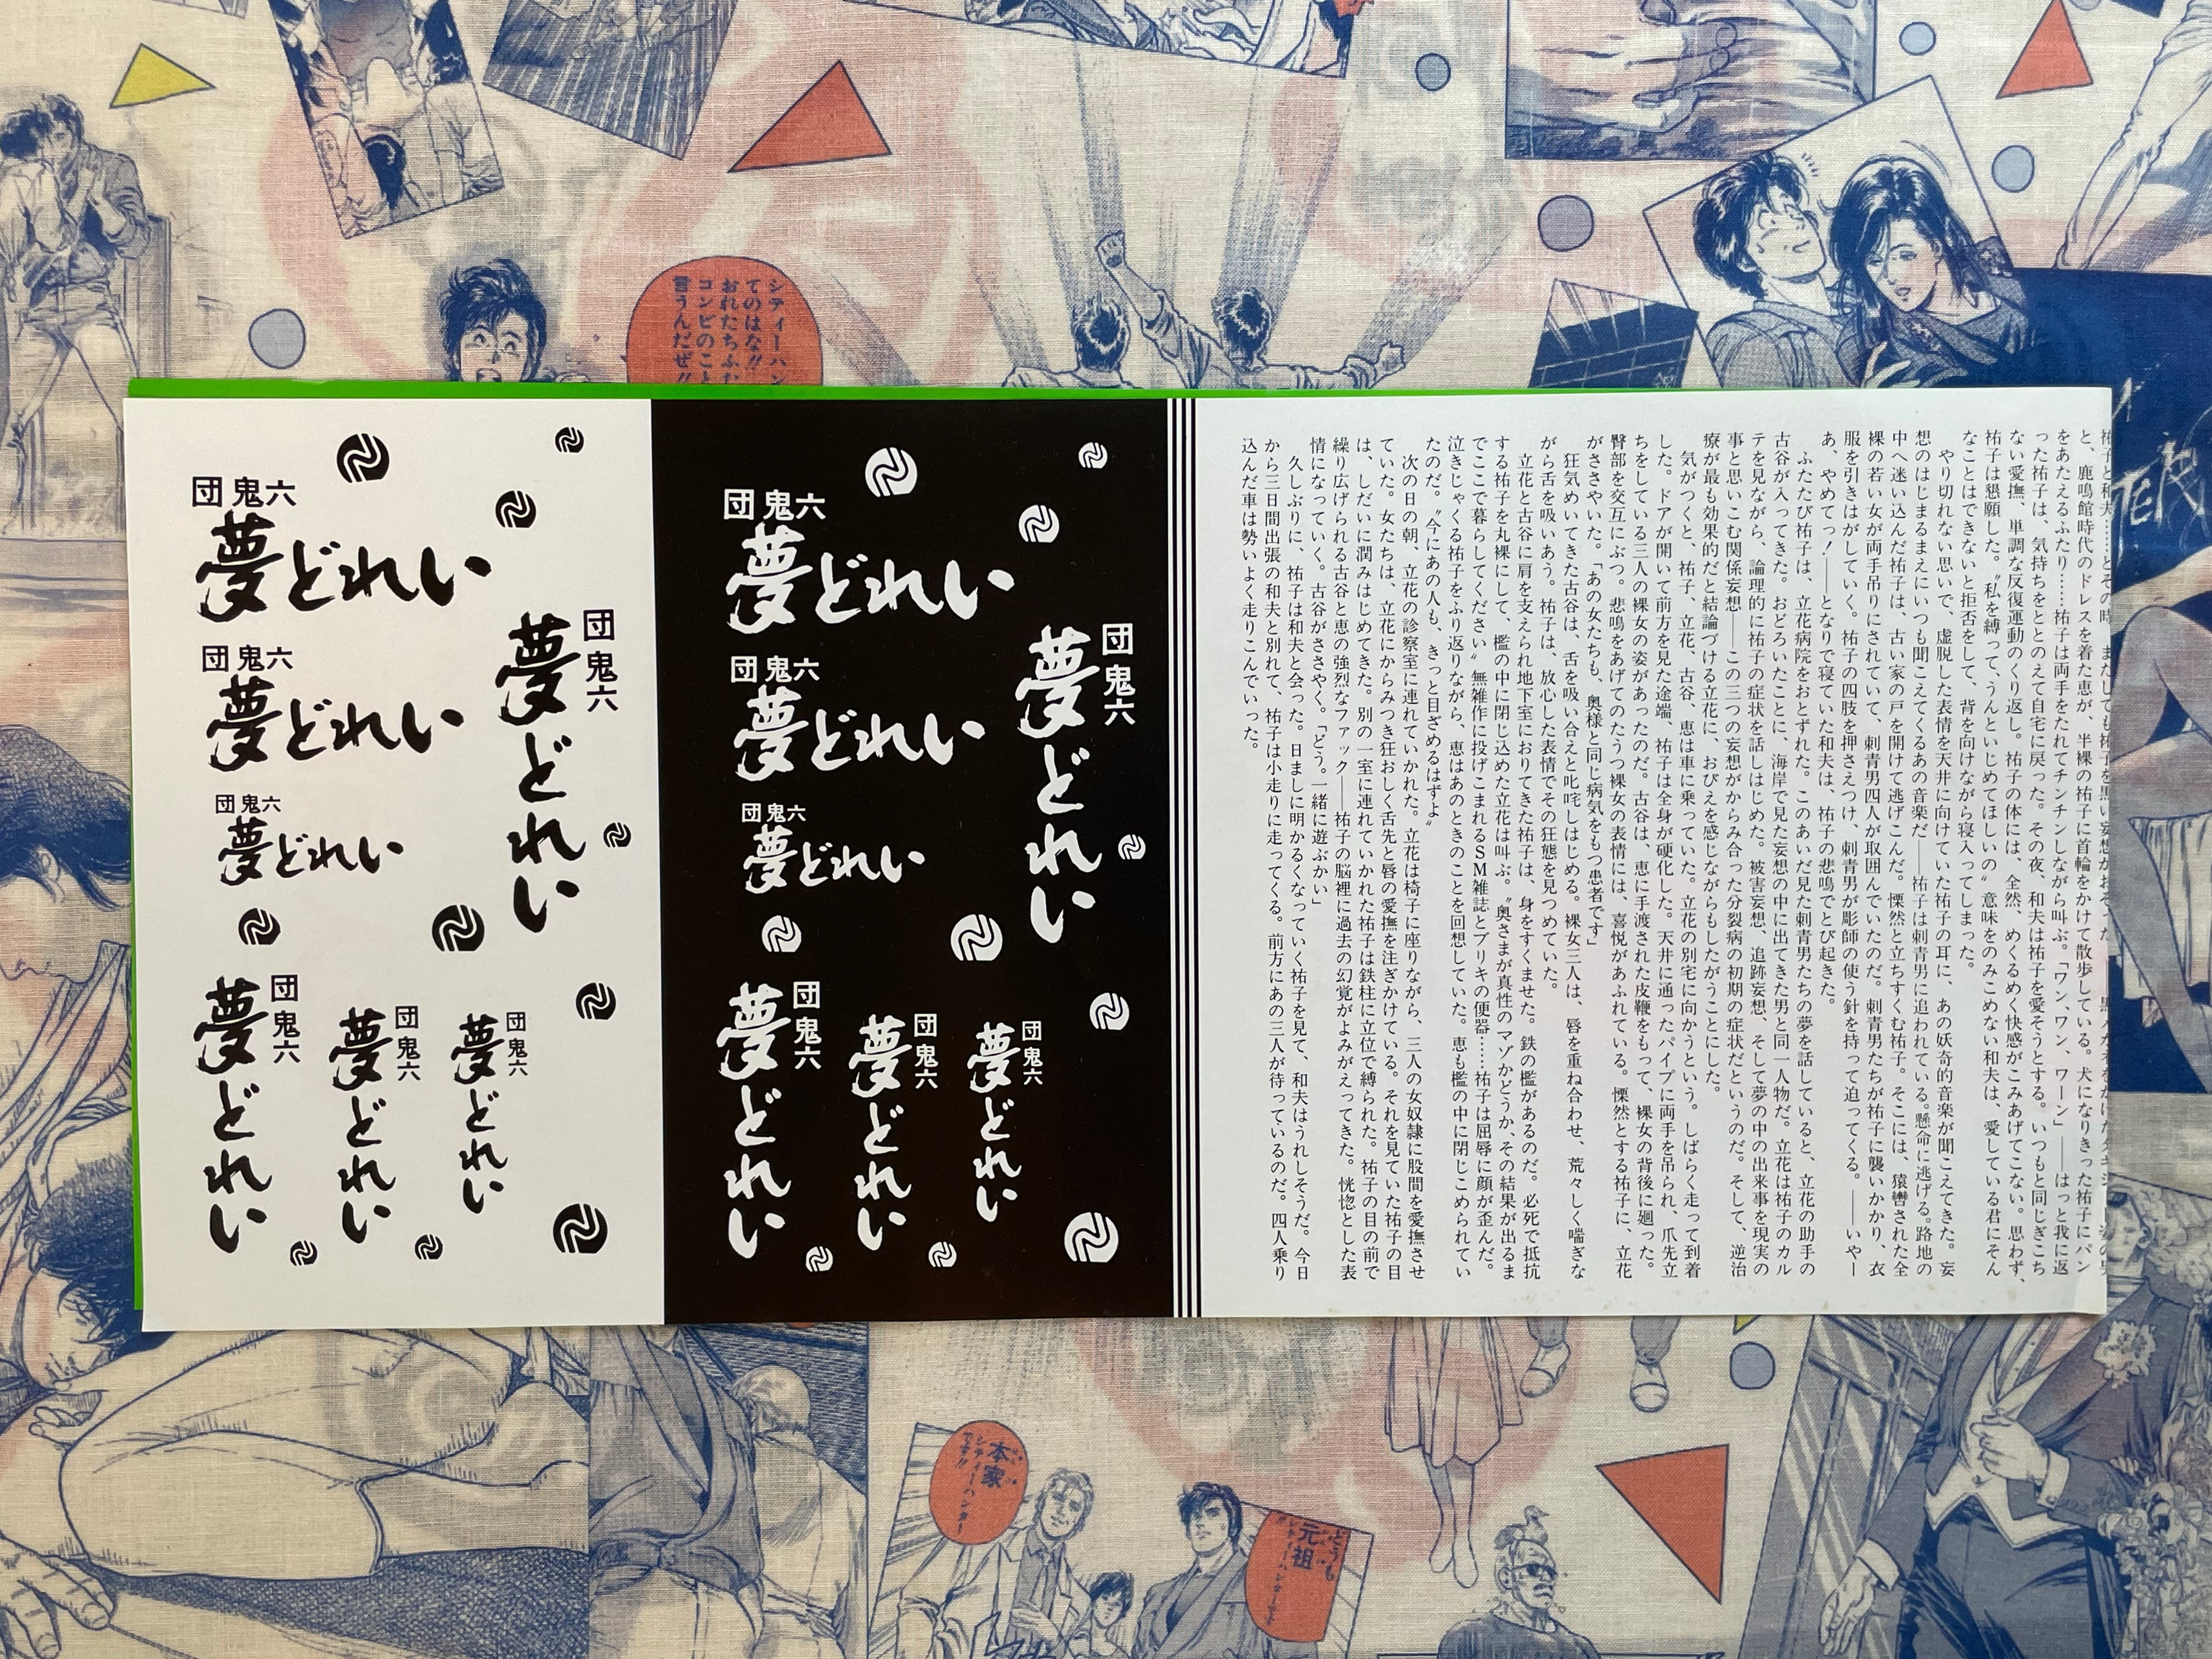 シティーハン
てのはな!!
おれたちふた
コンビのこと
言うんだぜ!!
団鬼六
夢どれい
団鬼六
夢どれい
団鬼六
夢どれい
団鬼六
夢どれい
団鬼六
夢どれい
団鬼六
夢どれい
団鬼六
夢どれい
団鬼六
夢どれい
団鬼六
夢どれい
団鬼六
夢どれい
団鬼六
夢どれい
団鬼六
夢どれい
団鬼六
夢どれい
団鬼六
夢どれい
と、鹿鳴館時代のドレスを着た恵が、半裸の祐子に首輪をかけて散歩している。犬になりきった祐子にパン
をあたえるふたり……祐子は両手をたれてチンチンしながら叫ぶ。「ワン、ワン、ワーン」——はっと我に返
った祐子は、気持ちをととのえて自宅に戻った。その夜、和夫は祐子を愛そうとする。いつもと同じぎこち
ない愛撫、単調な反復運動のくり返し。祐子の体には、全然、めくるめく快感がこみあげてこない。思わず、
祐子は懇願した。〝私を縛って、うんといじめてほしいの〟意味をのみこめない和夫は、愛している君にそん
なことはできないと拒否をして、背を向けながら寝入ってしまった。
やり切れない思いで、虚脱した表情を天井に向けていた祐子の耳に、あの妖奇的音楽が聞こえてきた。妄
想のはじまるまえにいつも聞こえてくるあの音楽だ——祐子は刺青男に追われている。懸命に逃げる。路地の
中へ迷い込んだ祐子は、古い家の戸を開けて逃げこんだ。慄然と立ちすくむ祐子。そこには、猿轡された全
裸の若い女が両手吊りにされていて、刺青男四人が取囲んでいたのだ。刺青男たちが祐子に襲いかかり、衣
服を引きはがしていく。祐子の四肢を押さえつけ、刺青男が彫師の使う針を持って迫ってくる。——いやー
あ、やめてっ！——となりで寝ていた和夫は、祐子の悲鳴でとび起きた。
ふたたび祐子は、立花病院をおとずれた。このあいだ見た刺青男たちの夢を話していると、立花の助手の
古谷が入ってきた。おどろいたことに、海岸で見た妄想の中に出てきた男と同一人物だ。立花は祐子のカル
テを見ながら、論理的に祐子の症状を話しはじめた。被害妄想、追跡妄想、そして夢の中の出来事を現実の
事と思いこむ関係妄想——この三つの妄想がからみ合った分裂病の初期の症状だというのだ。そして、逆治
療が最も効果的だと結論づける立花に、おびえを感じながらもしたがうことにした。
気がつくと、祐子、立花、古谷、恵は車に乗っていた。立花の別宅に向かうという。しばらく走って到着
した。ドアが開いて前方を見た途端、祐子は全身が硬化した。天井に通ったパイプに両手を吊られ、爪先立
ちをしている三人の裸女の姿があったのだ。古谷は、恵に手渡された皮鞭をもって、裸女の背後に廻った。
臀部を交互にぶつ。悲鳴をあげてのたうつ裸女の表情には、喜悦があふれている。慄然とする祐子に、立花
がささやいた。「あの女たちも、奥様と同じ病気をもつ患者です」
狂気めいてきた古谷は、舌を吸い合えと叱咤しはじめる。裸女三人は、唇を重ね合わせ、荒々しく喘ぎな
がら舌を吸いあう。祐子は、放心した表情でその狂態を見つめていた。
立花と古谷に肩を支えられ地下室におりてきた祐子は、身をすくませた。鉄の檻があるのだ。必死で抵抗
する祐子を丸裸にして、檻の中に閉じ込めた立花は叫ぶ。〝奥さまが真性のマゾかどうか、その結果が出るま
でここで暮らしてください〟無雑作に投げこまれるＳＭ雑誌とブリキの便器……祐子は屈辱に顔が歪んだ。
泣きじゃくる祐子をふり返りながら、恵はあのときのことを回想していた。恵も檻の中に閉じこめられてい
たのだ。〝今にあの人も、きっと目ざめるはずよ〟
次の日の朝、立花の診察室に連れていかれた。立花は椅子に座りながら、三人の女奴隷に股間を愛撫させ
ていた。女たちは、立花にからみつき狂おしく舌先と唇の愛撫を注ぎかけている。それを見ていた祐子の目
は、しだいに潤みはじめてきた。別の一室に連れていかれた祐子は鉄柱に立位で縛られた。祐子の目の前で
繰り広げられる古谷と恵の強烈なファック——祐子の脳裡に過去の幻覚がよみがえってきた。恍惚とした表
情になっていく。古谷がささやく。「どう。一緒に遊ぶかい」
久しぶりに、祐子は和夫と会った。日ましに明かるくなっていく祐子を見て、和夫はうれしそうだ。今日
から三日間出張の和夫と別れて、祐子は小走りに走ってくる。前方にあの三人が待っているのだ。四人乗り
込んだ車は勢いよく走りこんでいった。
本家
シティーハンター
です!!
どうも
元祖
シティーハンターです